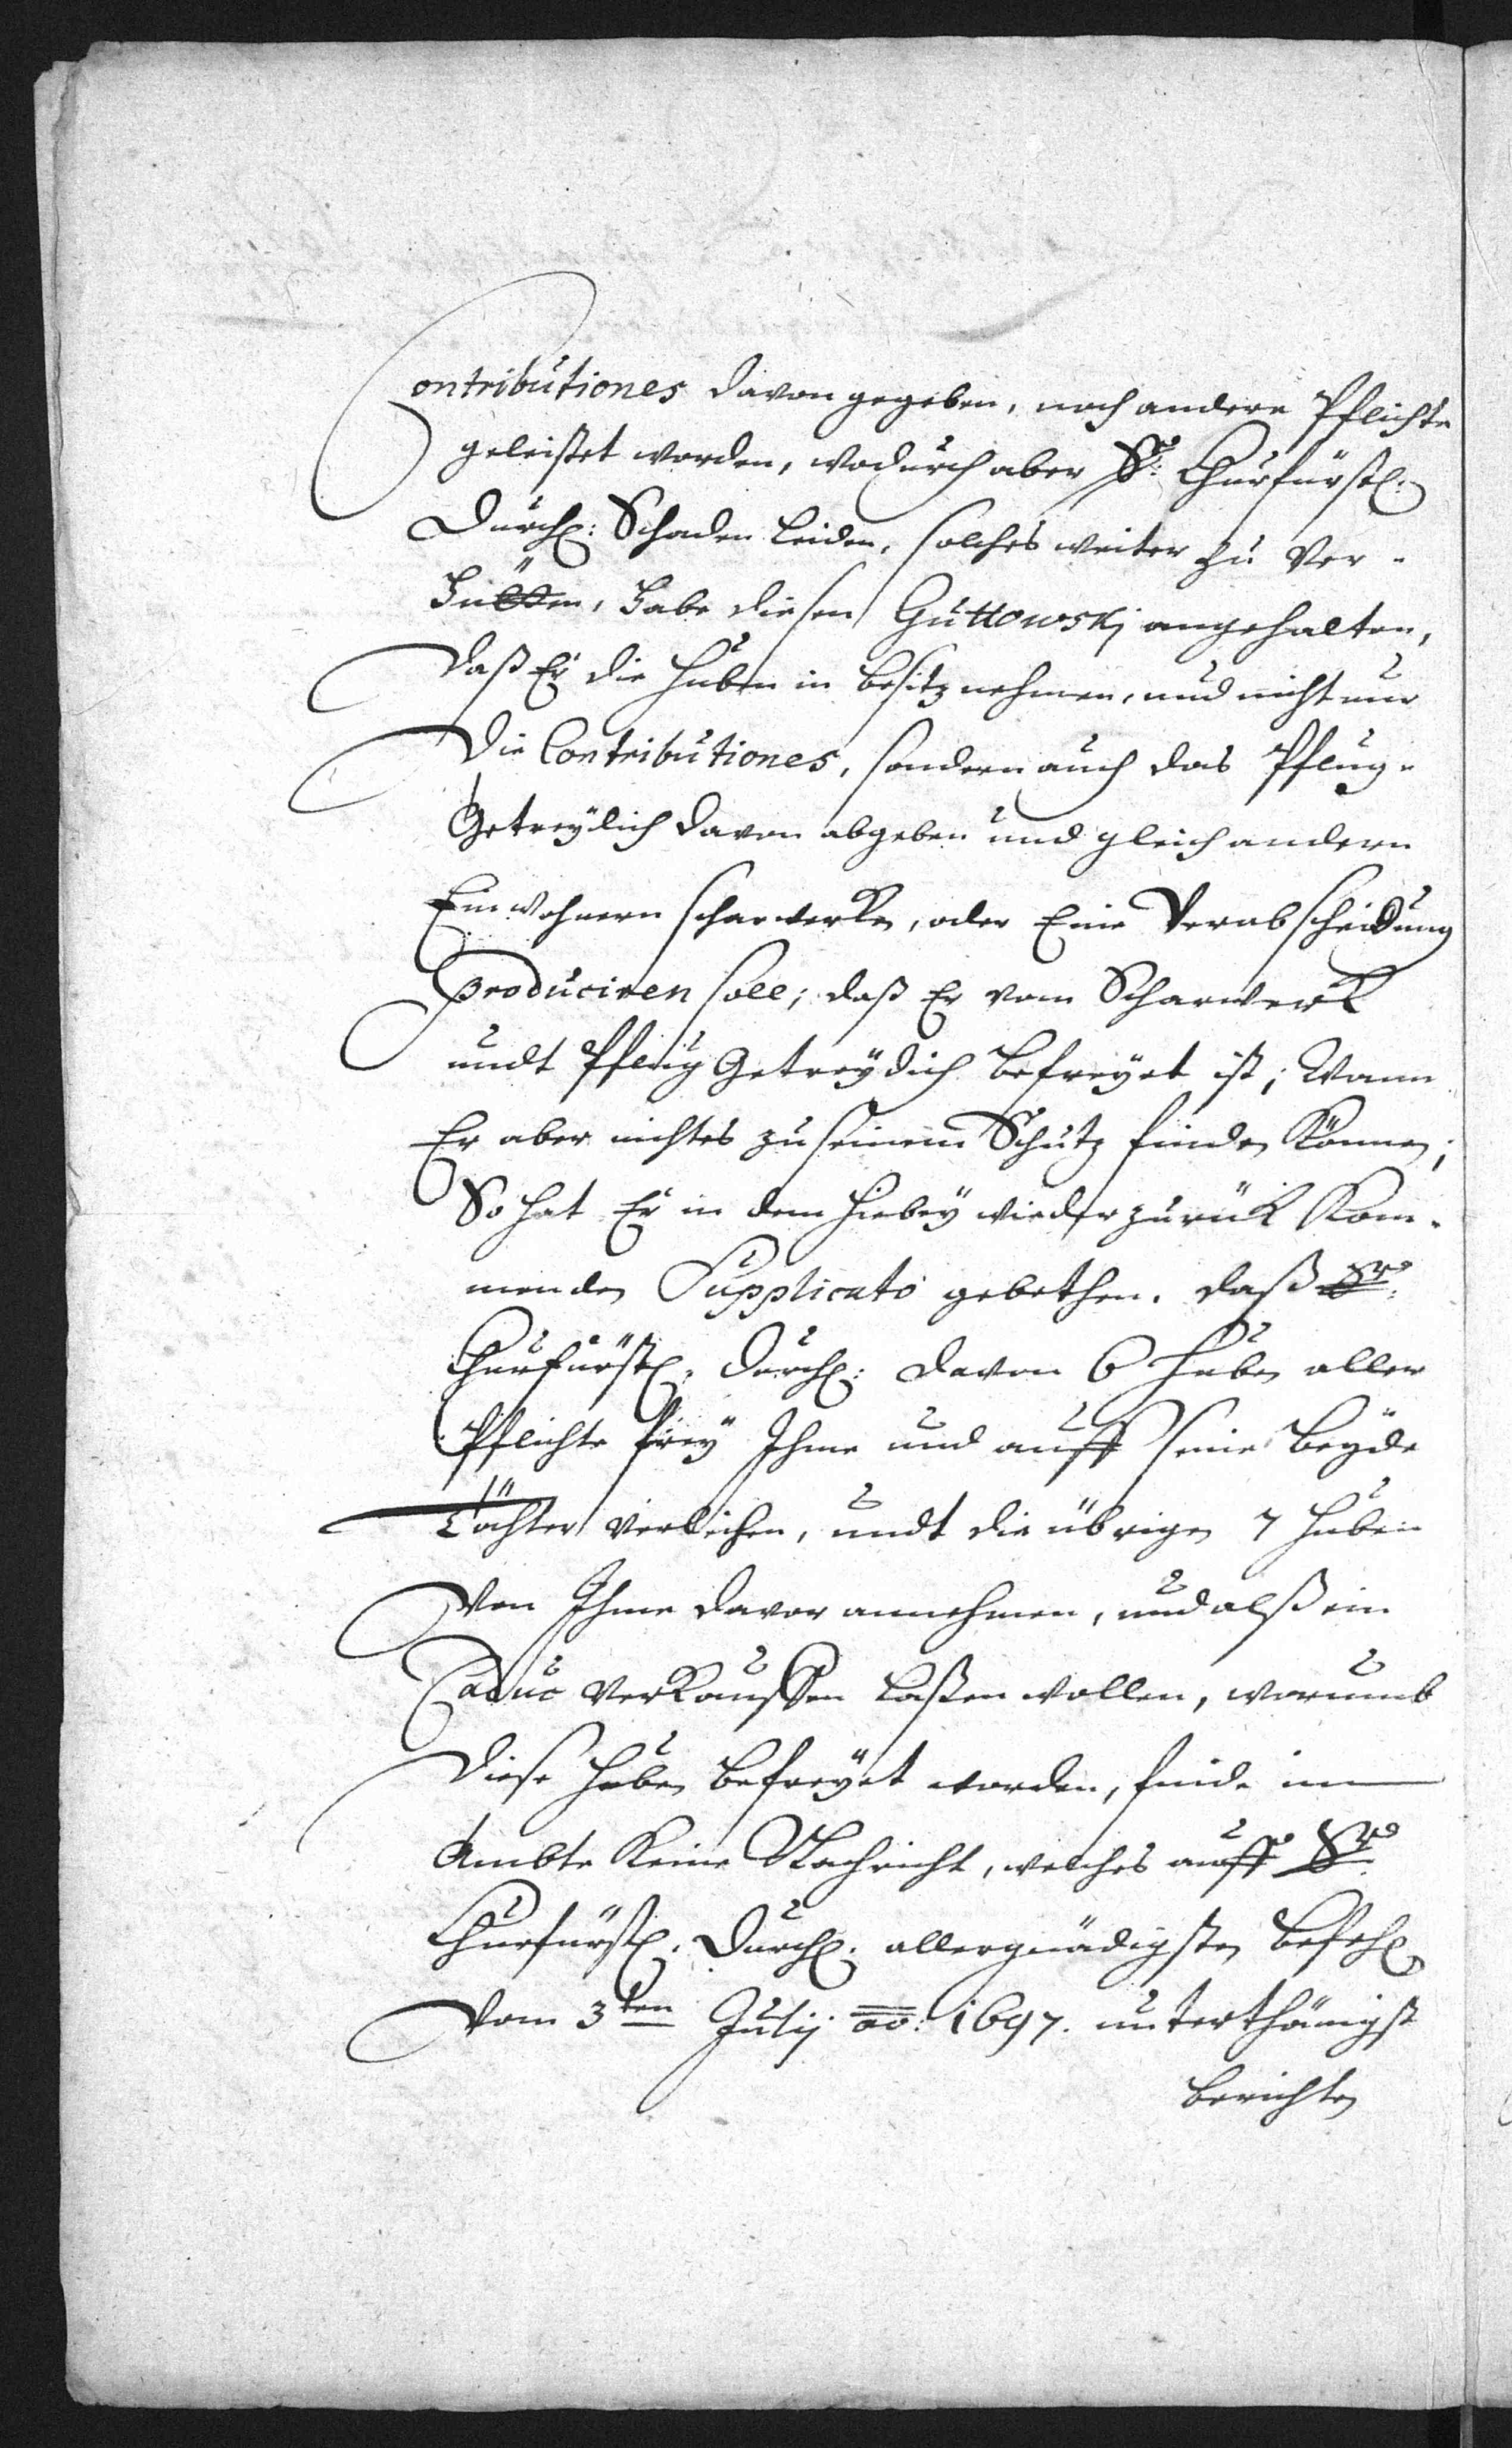 Contributiones davon gegeben, noch andere Pflichte
geleistet worden, wodurch aber Sr: Churfürstl:
Durchl: Schaden leiden, solches weiter zu Ver-
hütten, habe diesen Guttowskj angehalten,
daß Er die Huben in besitz nehmen, und nicht nur
die Contributiones, sondern auch das Pflug-
Getreydich davon abgeben und gleich andern
Einwohnern scharwerken, oder Eine Verabscheidung
produciren soll; daß Er vom Scharwerk
undt Pflug Getreydich befreyet ist; Wann
Er aber nichtes zu seinem Schutz finden können;
So hat Er in dem hiebey wieder zurük Kom-
menden Supplicato gebethen. daß Sr:
Churfürstl. Durchl: davon 6 Huben aller
Pflichte frey Ihme und auff seine beyde
Töchter verleihen, undt die übrigen 7 Huben
Von Ihme davor annehmen, und alß ein
Caduc verkauffen laßen wollen, warumb
diese Huben befreyet worden, finde im
Ambte keine Nachricht, welches auff Sr
Churfürstl. Durchl. allergnädigsten befehl
Vom 3ten Julij ao: 1697. unterthänigst
berichten